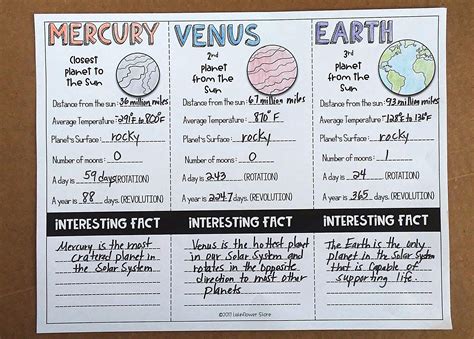 MERCURY
Closest
planet to
the Sun
Distance from the sun: 36 million miles
Average Temperature: -291°F to 800°F
Planet's Surface: rocky
Number of moons: 0
A day is 59 days (ROTATION)
A year is 88 days. (REVOLUTION)
INTERESTING FACT
Mercury is the most
cratered planet in
the Solar System
VENUS
2nd
planet
from the
Sun
Distance from the sun: 67 million miles
Average Temperature: 870°F
Planet's Surface: rocky
Number of moons: 0
A day is 243 (ROTATION)
A year is 224.7 days. (REVOLUTION)
INTERESTING FACT
Venus is the hottest planet
in our Solar System and
rotates in the opposite
direction to most other
planets
EARTH
3rd
planet
from the
Sun
Distance from the sun: 93 million miles
Average Temperature: -128°F to 136°F
Planet's Surface: rocky
Number of moons:
A day is 24 (ROTATION)
A year is 365 days. (REVOLUTION)
INTERESTING FACT
The Earth is the only
planet in the Solar System
that is capable of
supporting life.